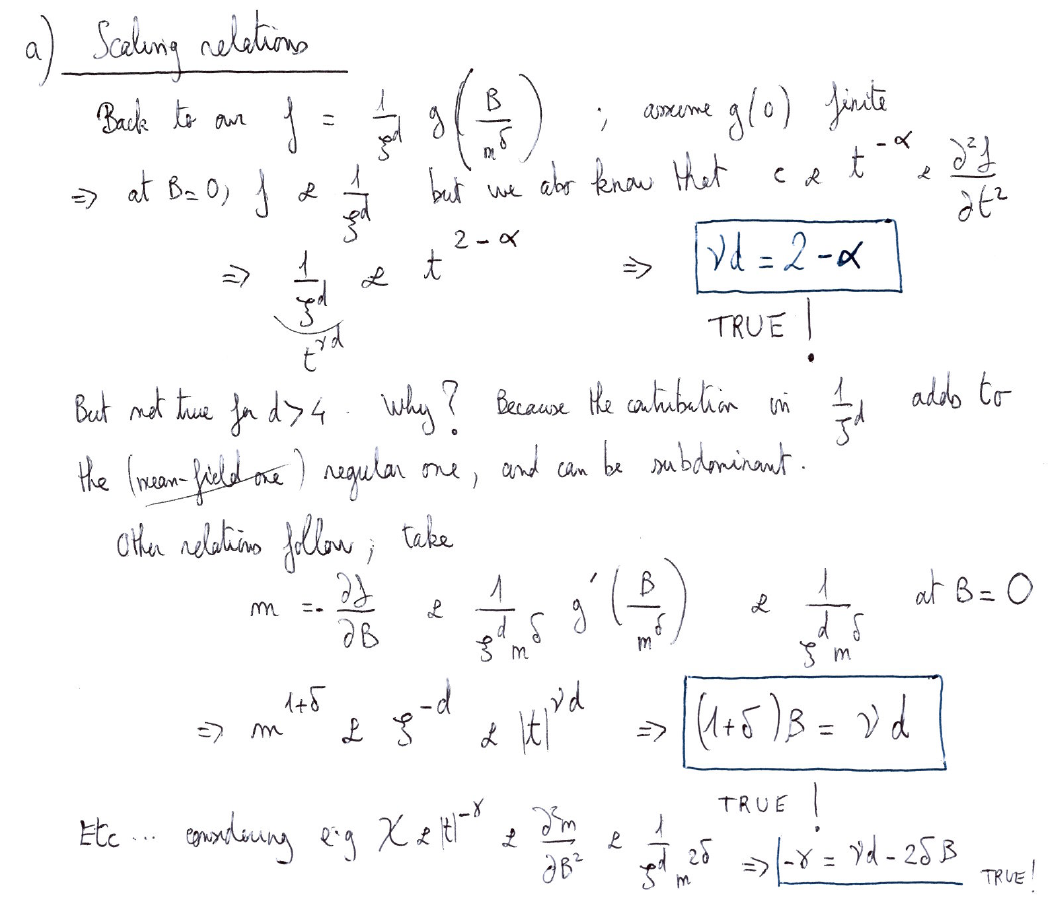 a) Scaling relations
Back to our f = 1/ξ^d g(B/m^δ) ; assume g(0) finite
=> at B=0, f ∝ 1/ξ^d but we also know that c ∝ t^{-α} ∝ ∂²f/∂t²
=> 1/ξ^d ∝ t^{2-α} => νd = 2-α
t^{νd} TRUE !
But not true for d>4. Why? Because the contribution in 1/ξ^d adds to
the (mean-field one) regular one, and can be subdominant.
Other relations follow ; take
m = -∂f/∂B ∝ 1/(ξ^d m^δ) g'(B/m^δ) ∝ 1/(ξ^d m^δ) at B=0
=> m^{1+δ} ∝ ξ^{-d} ∝ |t|^{νd} => (1+δ)β = νd
TRUE !
Etc ... considering e.g χ ∝ |t|^{-γ} ∝ ∂²m/∂B² ∝ 1/ξ^d m^{2δ} => -γ = νd - 2δβ TRUE!